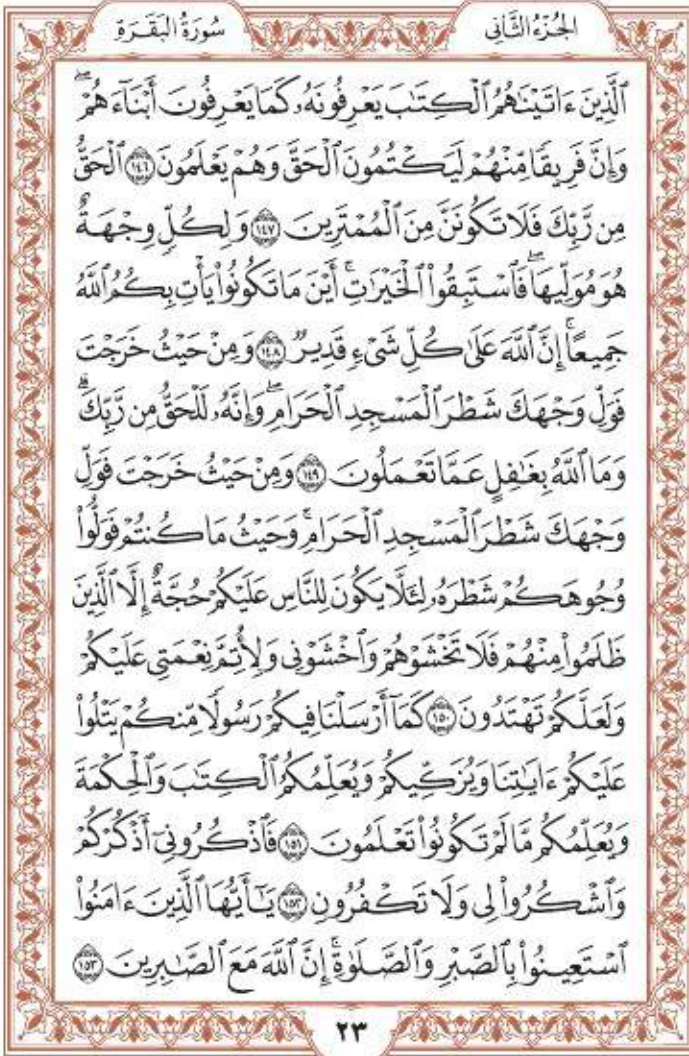 الجُزْءُ الثَّانِى
سُورَةُ الْبَقَرَةِ
ٱلَّذِينَ ءَاتَيْنَٰهُمُ ٱلْكِتَٰبَ يَعْرِفُونَهُۥ كَمَا يَعْرِفُونَ أَبْنَآءَهُمْۖ
وَإِنَّ فَرِيقًا مِّنْهُمْ لَيَكْتُمُونَ ٱلْحَقَّ وَهُمْ يَعْلَمُونَ ١٤٦ ٱلْحَقُّ
مِن رَّبِّكَ فَلَا تَكُونَنَّ مِنَ ٱلْمُمْتَرِينَ ١٤٧ وَلِكُلٍّ وِجْهَةٌ
هُوَ مُوَلِّيهَاۖ فَٱسْتَبِقُوا۟ ٱلْخَيْرَٰتِۚ أَيْنَ مَا تَكُونُوا۟ يَأْتِ بِكُمُ ٱللَّهُ
جَمِيعًاۚ إِنَّ ٱللَّهَ عَلَىٰ كُلِّ شَىْءٍ قَدِيرٌ ١٤٨ وَمِنْ حَيْثُ خَرَجْتَ
فَوَلِّ وَجْهَكَ شَطْرَ ٱلْمَسْجِدِ ٱلْحَرَامِۖ وَإِنَّهُۥ لَلْحَقُّ مِن رَّبِّكَۗ
وَمَا ٱللَّهُ بِغَٰفِلٍ عَمَّا تَعْمَلُونَ ١٤٩ وَمِنْ حَيْثُ خَرَجْتَ فَوَلِّ
وَجْهَكَ شَطْرَ ٱلْمَسْجِدِ ٱلْحَرَامِۚ وَحَيْثُ مَا كُنتُمْ فَوَلُّوا۟
وُجُوهَكُمْ شَطْرَهُۥ لِئَلَّا يَكُونَ لِلنَّاسِ عَلَيْكُمْ حُجَّةٌ إِلَّا ٱلَّذِينَ
ظَلَمُوا۟ مِنْهُمْ فَلَا تَخْشَوْهُمْ وَٱخْشَوْنِى وَلِأُتِمَّ نِعْمَتِى عَلَيْكُمْ
وَلَعَلَّكُمْ تَهْتَدُونَ ١٥٠ كَمَآ أَرْسَلْنَا فِيكُمْ رَسُولًا مِّنكُمْ يَتْلُوا۟
عَلَيْكُمْ ءَايَٰتِنَا وَيُزَكِّيكُمْ وَيُعَلِّمُكُمُ ٱلْكِتَٰبَ وَٱلْحِكْمَةَ
وَيُعَلِّمُكُم مَّا لَمْ تَكُونُوا۟ تَعْلَمُونَ ١٥١ فَٱذْكُرُونِىٓ أَذْكُرْكُمْ
وَٱشْكُرُوا۟ لِى وَلَا تَكْفُرُونِ ١٥٢ يَٰٓأَيُّهَا ٱلَّذِينَ ءَامَنُوا۟
ٱسْتَعِينُوا۟ بِٱلصَّبْرِ وَٱلصَّلَوٰةِۚ إِنَّ ٱللَّهَ مَعَ ٱلصَّٰبِرِينَ ١٥٣
٢٣